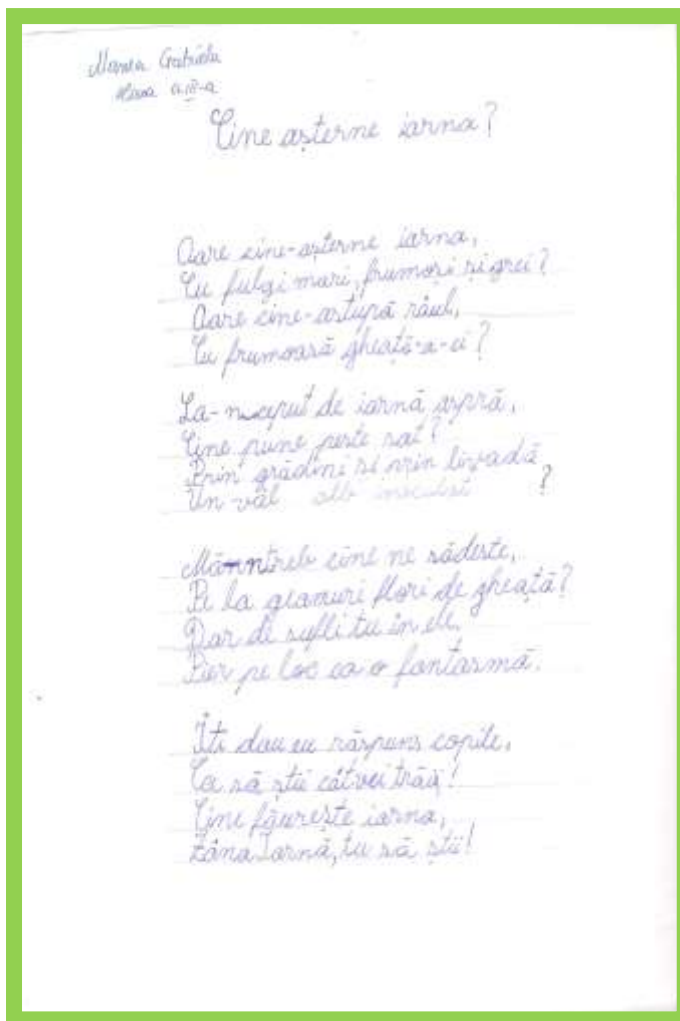 Manea Gabriela
clasa a III-a
Cine așterne iarna?
Oare cine-așterne iarna,
Cu fulgi mari, frumoși și grei?
Oare cine-astupă râul,
Cu frumoasă gheață-a-ei?
La-nceput de iarnă aspră,
Cine pune peste sat?
Prin grădini si prin livadă
Un văl alb ?
Mă-ntreb cine ne sădește,
Pe la geamuri flori de gheață?
Dar de sufli tu în ele,
Pier pe loc ca o fantasmă.
Îti dau eu răspuns copile,
Ca să știi cât vei trăi!
Cine făurește iarna,
Zâna Iarnă, tu să știi!